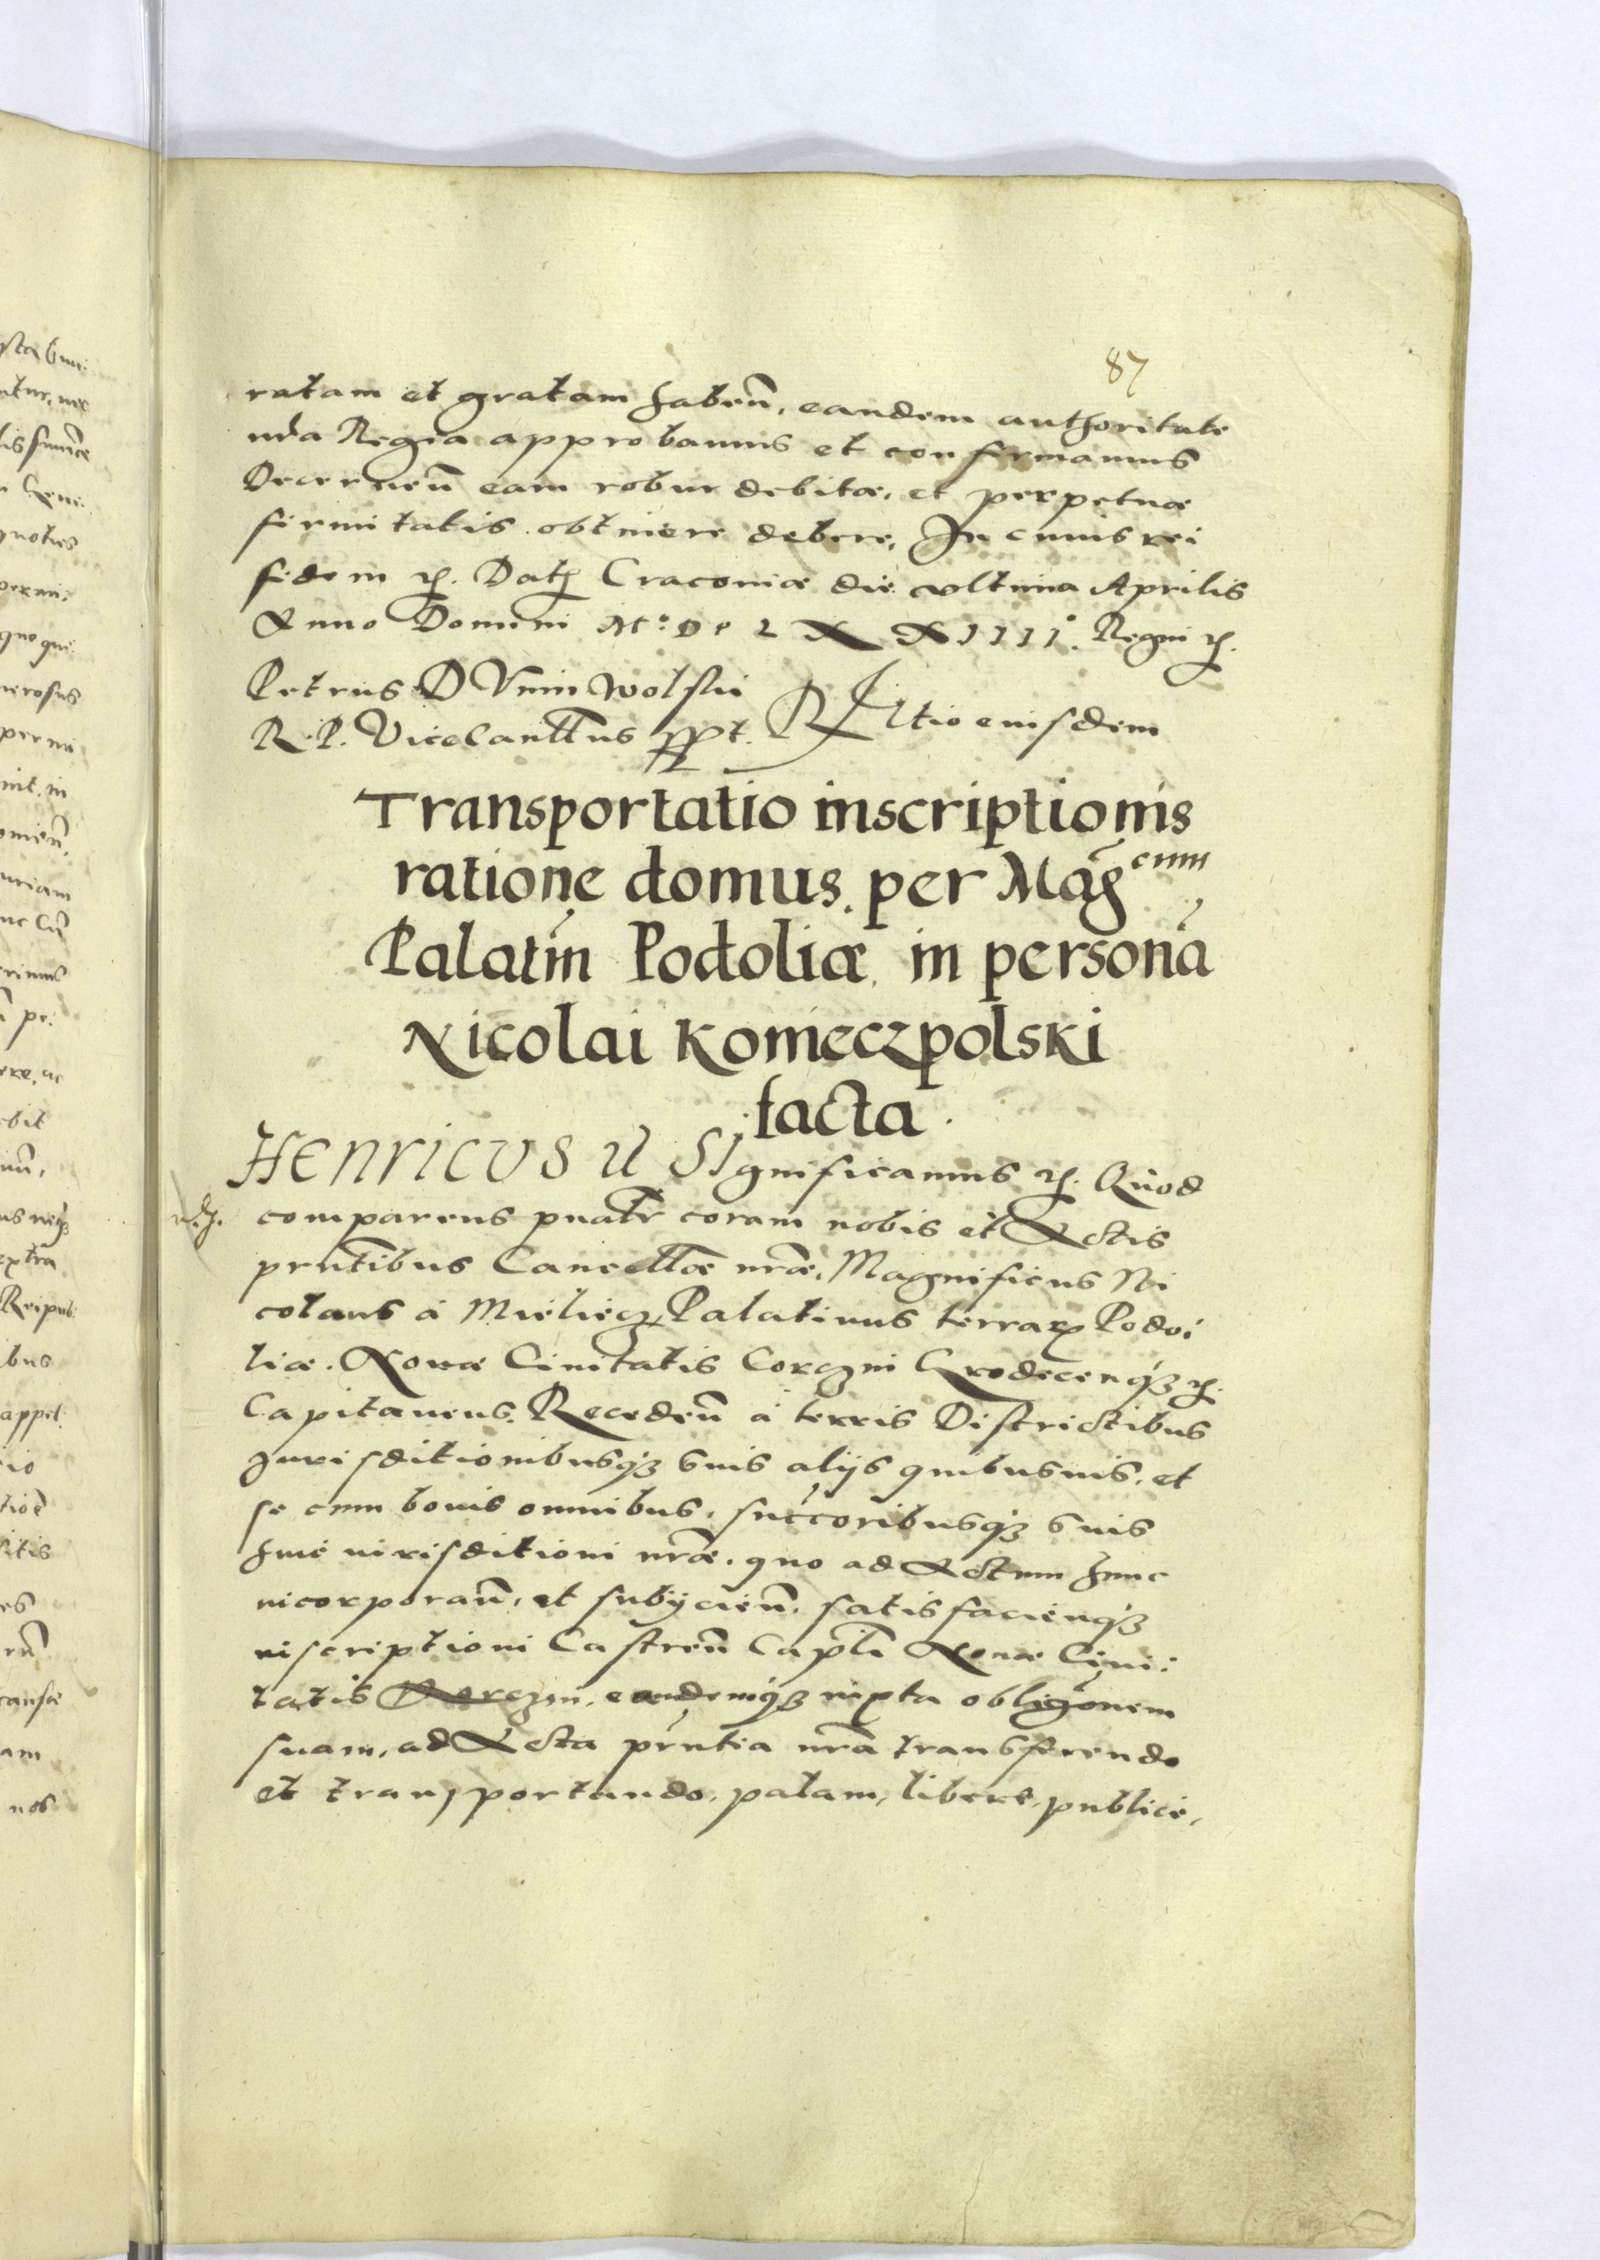 87
ratam et gratam haben̄, eandem authoritate
nr̄a Regia approbamus et confirmamus
Decernen̄ eam robur debitæ, et perpetuæ
firmitatis obtinere debere, In cuius rei
fidem ꝛc. Datꝫ Cracoviæ die ultima Aprilis
Anno Domini Mº. D. LXXIIIIº. Regni ꝛc.
Petrus DUnin Wolski
R. P. Vicecancellarius sspt. RElatio eiusdem
Transportatio inscriptionis
ratione domus. per Mag̃cum
Palatin̄ Podoliæ in personā
Nicolai Konieczpolski
facta.
HENRICVS ꝛc SIgnificamus ꝛc. Quod
comparens pn̄ate͂r coram nobis et Actis
pn̄tibus Cancellæ nr̄æ, Magnificus Ni
colaus à Mielecz, Palatinus terrarꝫ Podo:
liæ. Novæ Civitatis Corczin Grodecenqꝫ ꝛc.
Capitaneus. Receden̄ à terris Districtibus
Jurisditionibusqꝫ suis alijs quibusvis, et
se cum bonis omnibus, succ̄oribusqꝫ suis
huic iurisditioni nr̄æ, quo ad Actum hunc
incorporan̄, et subijcien̄, satisfacienqꝫ
inscriptioni Castren̄ Capl̄i Novæ Civi:
tatis Corczin, eandemqꝫ iuxta oblig̃onem
suam, ad Acta pr̄ntia nr̄a transferendo
et transportando, palam, libere, publice,